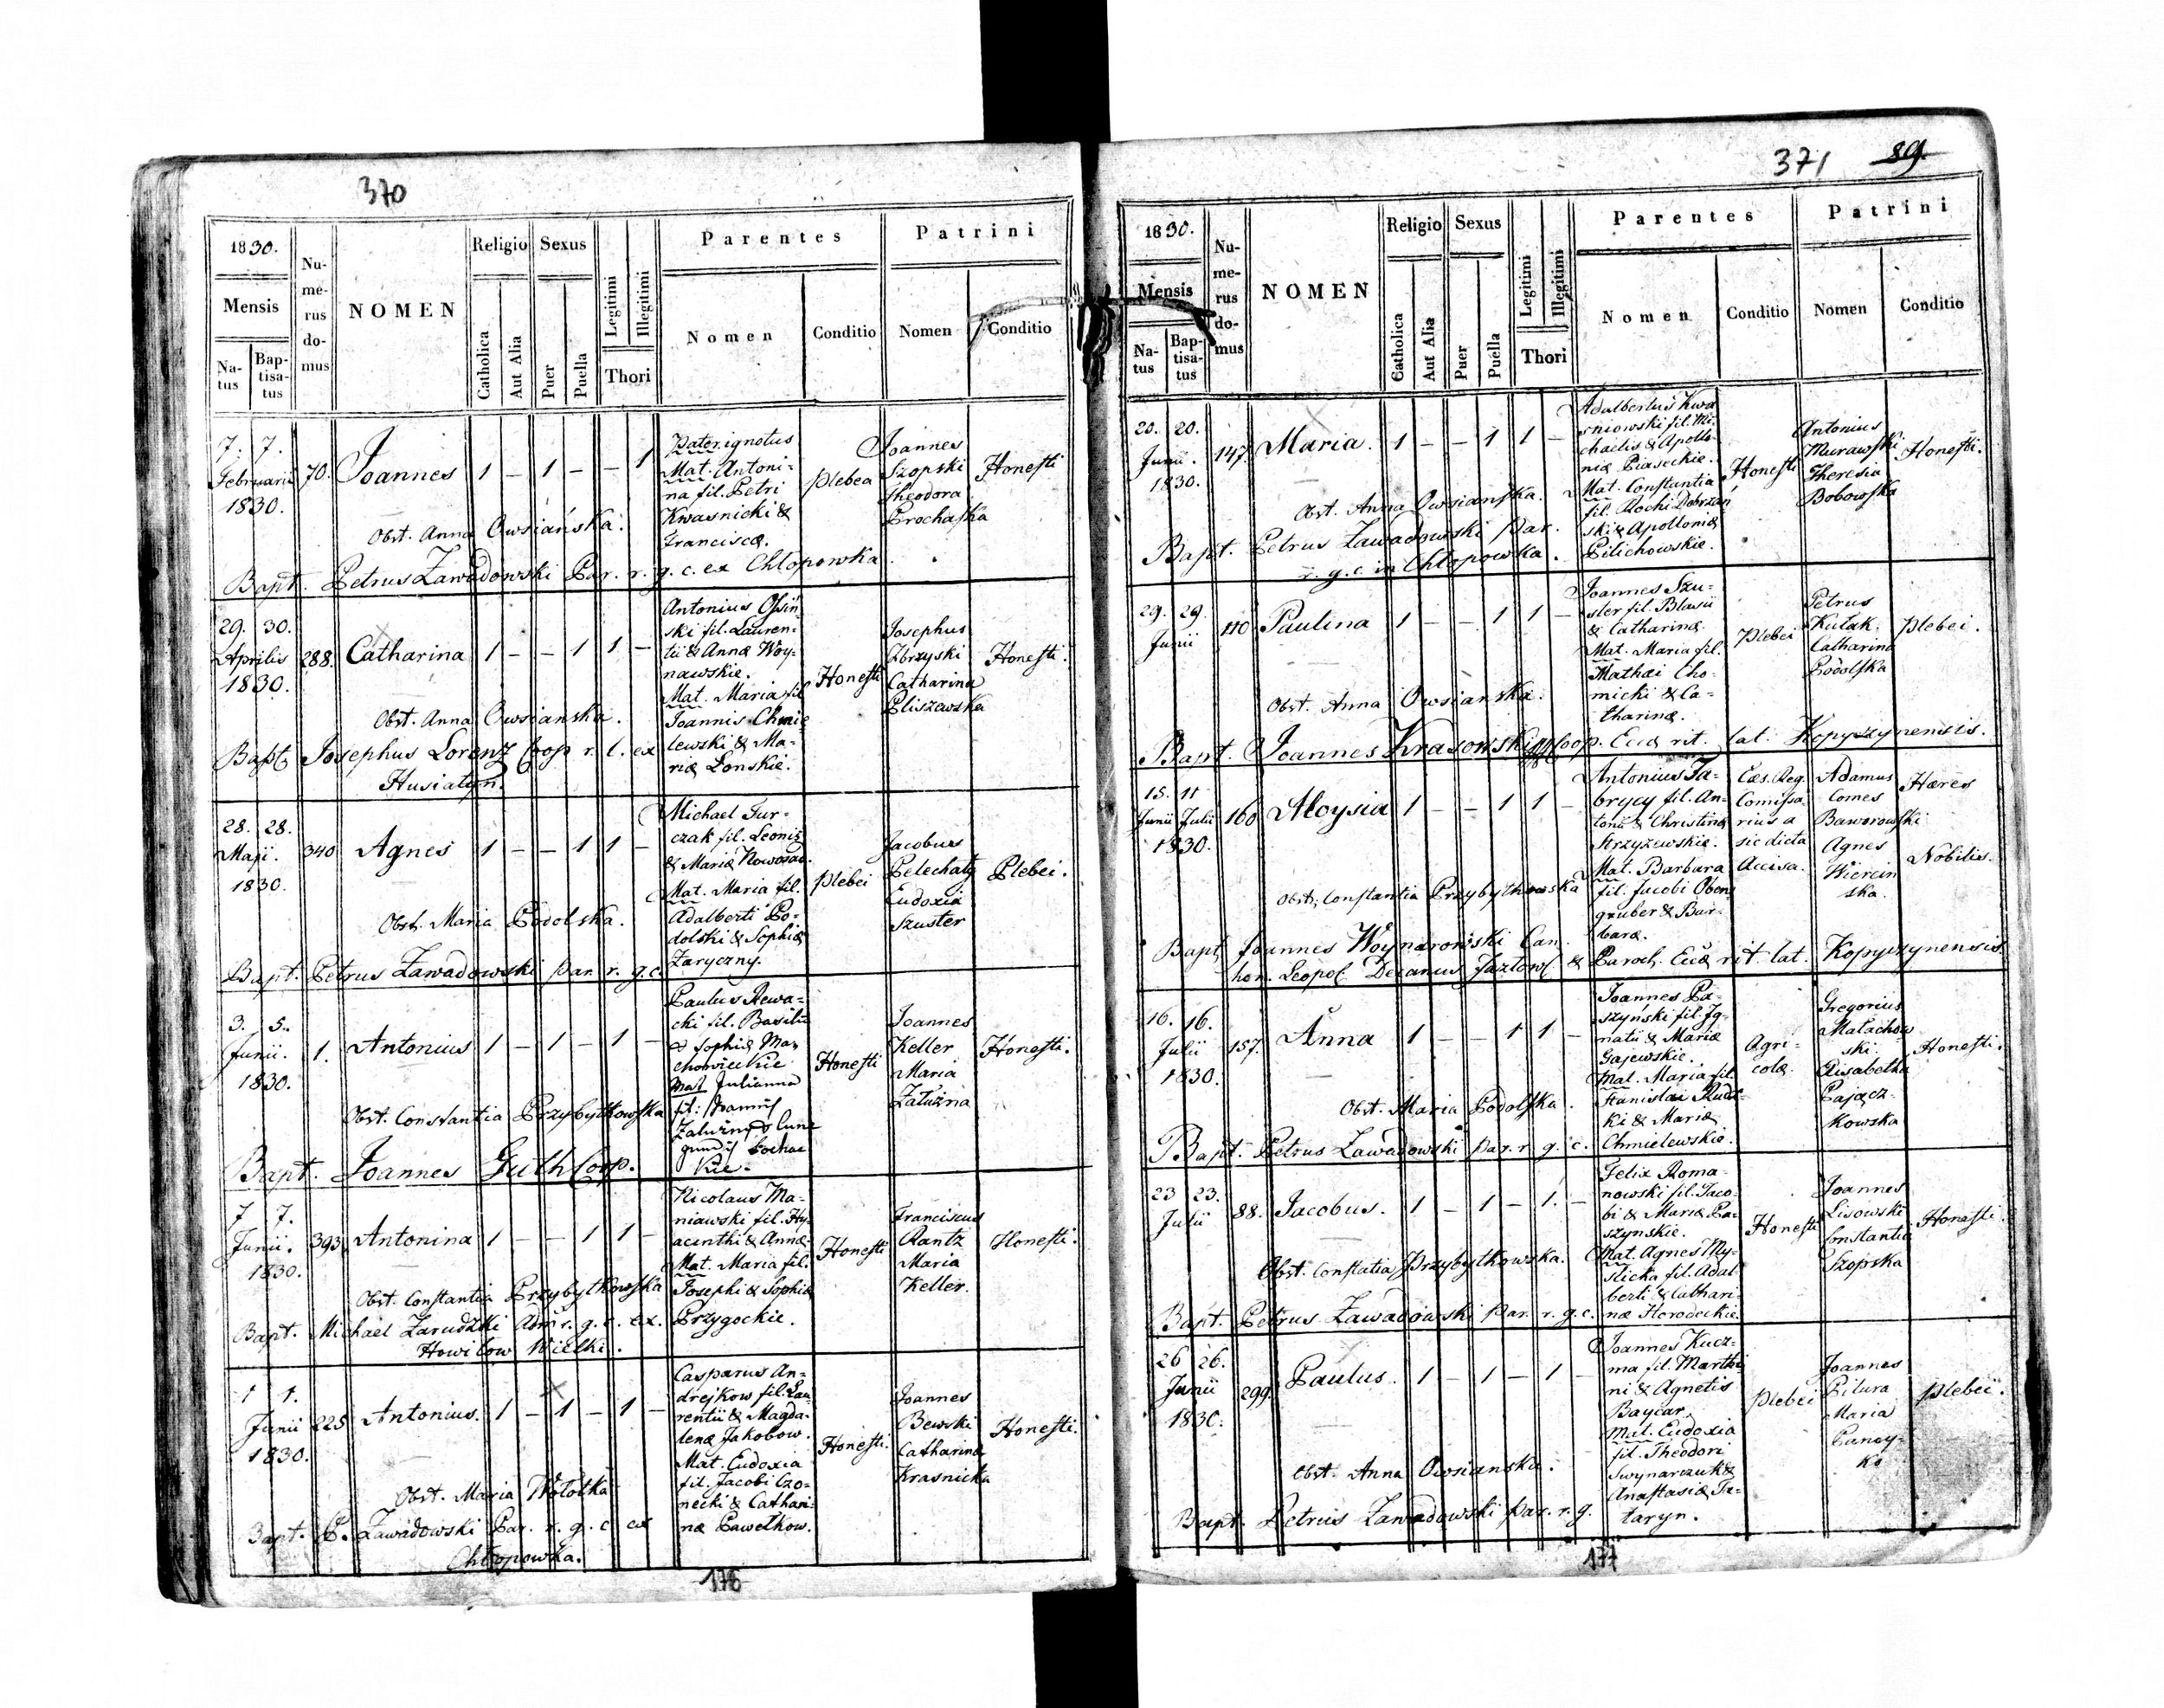 370
1830.
Mensis
Na-
tus
Bap-
tisa-
tus
Nu-
me-
rus
do-
mus
NOMEN
Religio
Catholica
Aut Alia
Sexus
Puer
Puella
Legitimi
Illegitimi
Thori
Parentes
Nomen
Conditio
Patrini
Nomen
Conditio
7. 7.
Februarii
1830.
70.
Joannes
1 – 1 – – 1
Pater ignotus
Mat. Antoni-
na fil. Petri
Kwasnicki &
Franciscæ.
Plebea
Joannes
Szopski
Theodora
Prochaska
Honesti
Obst. Anna Owsiańska.
Bapt. Petrus Zawadowski Par. r. g. c. ex Chłopowka.
29. 30.
Aprilis
1830.
288.
Catharina
1 – – 1 1 –
Antonius Ossin-
ski fil. Lauren-
tii & Annæ Woy-
nawskie.
Mat. Maria fil.
Joannis Chmie-
lewski & Ma-
riæ Łonskie.
Honesti
Josephus
Zbrzyski
Catharina
Pliszewska
Honesti.
Obst. Anna Owsianska.
Bapt. Josephus Lorenz Coop r. l. ex
Husiatyn.
28. 28.
Maji.
1830.
340
Agnes
1 – – 1 1 –
Michael Jur-
czak fil. Leonis
& Mariæ Nowosad.
Mat. Maria fil.
Adalberti Po-
dolski & Sophiæ
Zaryczny.
Plebei
Jacobus
Pelechaty
Eudoxia
Szuster
Plebei.
Obst. Maria Podolska.
Bapt. Petrus Zawadowski par. r. g. c.
3. 5.
Junii.
1830.
1.
Antonius
1 – 1 – 1 –
Paulus Rewa-
cki fil. Basilii
& Sophiæ Ma-
chowieckie
Mat Julianna
fil: Joannis
Zaluzny & Cune
gundis Lochac
kie.
Honesti
Joannes
Keller
Maria
Załuzna
Honesti.
Obst. Constantia Przybytkowska
Bapt. Joannes Guth Coop.
7 7.
Junii.
1830.
393
Antonina
1 – – 1 1 –
Nicolaus Ma-
niawski fil. Hy-
acinthi & Annæ.
Mat. Maria fil.
Josephi & Sophiæ
Przygockie.
Honesti
Franciscus
Rantz
Maria
Keller.
Honesti.
Obst. Constantia Przybytkowska
Bapt. Michael Zarudzki Adm r. g. c. ex.
Howilow Wielki.
1 1.
Junii
1830.
225
Antonius.
1 – 1 – 1 –
Casparus An-
drejkow fil. Lau-
rentii & Magda-
lenæ Jakobow.
Mat. Eudoxia
fil. Jacobi Czo-
necki & Cathari-
næ Pawełkow.
Honesti.
Joannes
Bewski
Catharina
Krasnicka
Honesti.
Obst. Maria Wołołka
Bapt. P. Zawadowski Par. r. g. c ex
Chłopowka.
176
371 89.
1830.
Mensis
Na-
tus
Bap-
tisa-
tus
Nu-
me-
rus
do-
mus
NOMEN
Religio
Catholica
Aut Alia
Sexus
Puer
Puella
Legitimi
Illegitimi
Thori
Parentes
Nomen
Conditio
Patrini
Nomen
Conditio
20. 20.
Junii.
1830.
147.
Maria.
1 – – 1 1 –
Adalbertus Kwa-
sniowski fil. Mi-
chaelis & Apollo-
niæ Piaseckie.
Mat. Constantia
fil. Rochi Dobrzań
ski & Apolloniæ
Pilichowskie.
Honesti
Antonius
Murawski
Theresia
Bobowska
Honesti.
Obst. Anna Owsianska.
Bapt. Petrus Zawadowski par.
r. g. c. in Chłopowka.
29. 29.
Junii
110
Paulina
1 – – 1 1 –
Joannes Szu-
ster fil. Blasii
& Catharinæ
Mat. Maria fil.
Mathæi Cho-
micki & Ca-
tharinæ.
Plebei
Petrus
Kułak.
Catharina
Podolska
Plebei.
Obst. Anna Owsianska.
Bapt. Joannes Krasowski Coop. Eccl rit. lat. Kopyczynensis.
15. 11
Junii Julii
1830.
160
Aloysia
1 – – 1 1 –
Antonius Fa-
brycy fil. An-
tonii & Christinæ
Strzyżewskie.
Mat. Barbara
fil. Jacobi Oben-
gruber & Bar-
baræ.
Cæs. Reg.
Comissa-
rius a
sic dicta
Accisa.
Adamus
Comes
Baworowski
Agnes
Wiercin
ska.
Hæres
Nobilis.
Obst. Constantia Przybytkowska
Bapt. Joannes Woynarowski Can.
hon. Leopol. Decanus Jazlow. & Paroch. Eccl rit lat. Kopyczynensis
16. 16.
Julii
1830.
157.
Anna
1 – – 1 1 –
Joannes Pa-
szynski fil. Ig-
natii & Mariæ
Gajewskie.
Mat. Maria fil.
Stanislai Rudz-
ki & Mariæ
Chmielewskie.
Agri-
colæ.
Gregorius
Małachow
ski.
Elisabetha
Pającz-
kowska
Honesti.
Obst. Maria Podolska.
Bapt. Petrus Zawadowski par. r. g. c.
23 23.
Julii
88.
Jacobus.
1 – 1 – 1. –
Felix Roma-
nowski fil. Jaco-
bi & Mariæ Pa-
szynskie.
Mat. Agnes My-
slicka fil. Adal-
berti & Cathari-
næ Horodeckie.
Honesti
Joannes
Lisowski
Constantia
Szopska
Honesti.
Obst. Constatia Przybytkowska.
Bapt. Petrus Zawadowski par. r. g. c.
26 26.
Junii
1830.
299.
Paulus.
1 – 1 – 1 –
Joannes Kucz-
ma fil. Marthi-
ni & Agnetis
Baycar.
Mat. Eudoxia
fil. Theodori
Swynarczuk &
Anastasiæ Ta-
taryn.
Plebei
Joannes
Pitura
Maria
Pancy-
ko
Plebei.
Obst. Anna Owsianska.
Bapt. Petrus Zawadowski par. r. g.
177